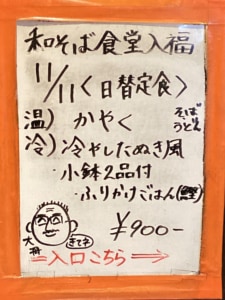 和そば食堂入福
11/11〈日替定食〉
温) かやく
そば
うどん
冷) 冷やしたぬき風
・小鉢2品付
・ふりかけごはん(鰹)
¥900-
大将
きてネ
=入口こちら⇒